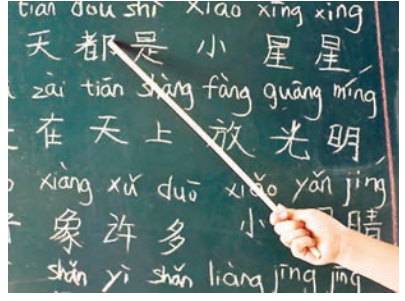 tiān dōu shì xiǎo xīng xing
天都是小星星
zài tiān shàng fàng guāng míng
在天上放光明
xiàng xǔ duō xiǎo yǎn jing
象许多小睛
shǎn yì shǎn liàng jīng jīng